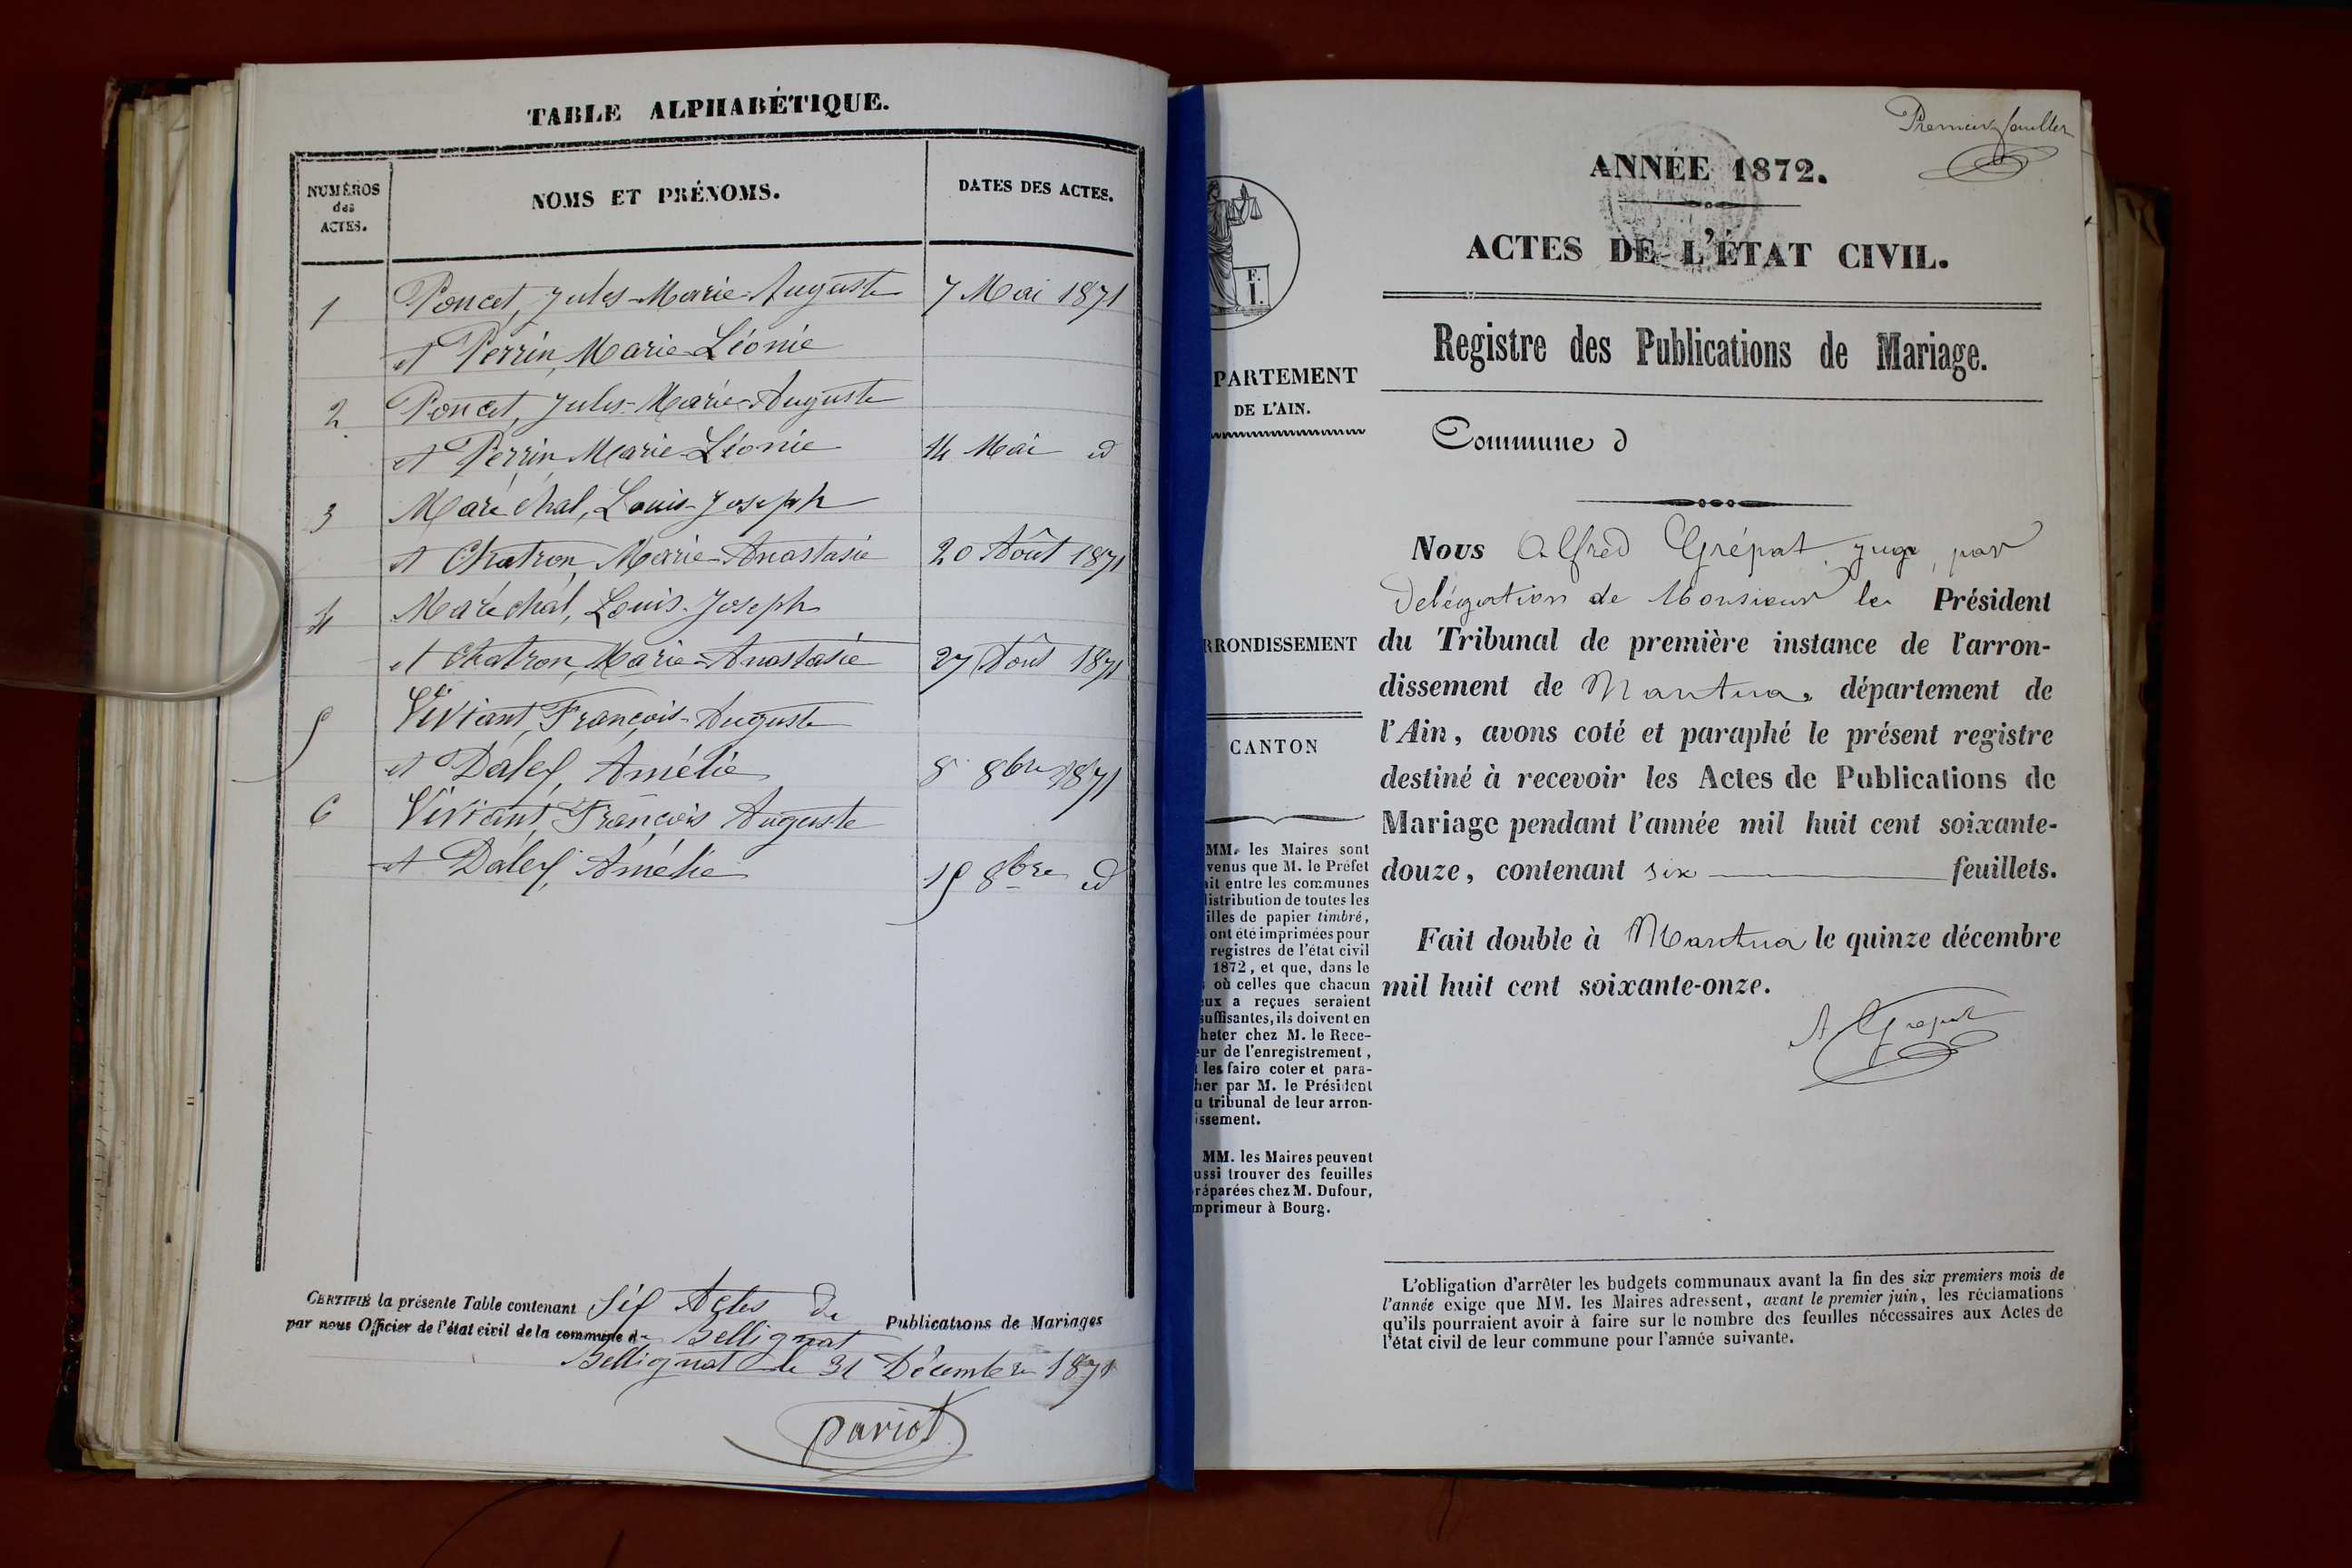 TABLE ALPHABÉTIQUE.
NUMÉROS
des
ACTES.
NOMS ET PRÉNOMS.
DATES DES ACTES.
1 Poncet, Jules-Marie-Auguste 7 Mai 1871
et Perrin, Marie-Léonie
2 Poncet, Jules-Marie-Auguste
et Perrin, Marie-Léonie 14 Mai id
3 Maréchal, Louis-Joseph
et Chatron, Marie-Anastasie 20 Août 1871
4 Maréchal, Louis-Joseph
et Chatron, Marie-Anastasie 27 Août 1871
5 Viviant, François-Auguste
et Dalex, Amélie 8 8bre 1871
6 Viviant, François Auguste
et Dalex, Amélie 15 8bre id
CERTIFIÉ la présente Table contenant Six Actes de Publications de Mariages
par nous Officier de l'état civil de la commune de Bellignat
Bellignat le 31 Décembre 1871
Pariot
Premier feuillet
ANNÉE 1872.
ACTES DE L'ÉTAT CIVIL.
Registre des Publications de Mariage.
F.
I.
PARTEMENT
DE L'AIN.
Commune d
RRONDISSEMENT
CANTON
MM. les Maires sont
venus que M. le Préfet
ait entre les communes
listribution de toutes les
illes de papier timbré,
ont été imprimées pour
registres de l'état civil
1872, et que, dans le
s où celles que chacun
eux a reçues seraient
suffisantes, ils doivent en
heter chez M. le Rece-
eur de l'enregistrement,
t les faire coter et para-
her par M. le Président
u tribunal de leur arron-
issement.
MM. les Maires peuvent
ussi trouver des feuilles
réparées chez M. Dufour,
mprimeur à Bourg.
Nous Alfred Grépat, juge, par
délégation de Monsieur le Président
du Tribunal de première instance de l'arron-
dissement de Nantua, département de
l'Ain, avons coté et paraphé le présent registre
destiné à recevoir les Actes de Publications de
Mariage pendant l'année mil huit cent soixante-
douze, contenant six feuillets.
Fait double à Nantua le quinze décembre
mil huit cent soixante-onze.
A Grépat
L'obligation d'arrêter les budgets communaux avant la fin des six premiers mois de
l'année exige que MM. les Maires adressent, avant le premier juin, les réclamations
qu'ils pourraient avoir à faire sur le nombre des feuilles nécessaires aux Actes de
l'état civil de leur commune pour l'année suivante.